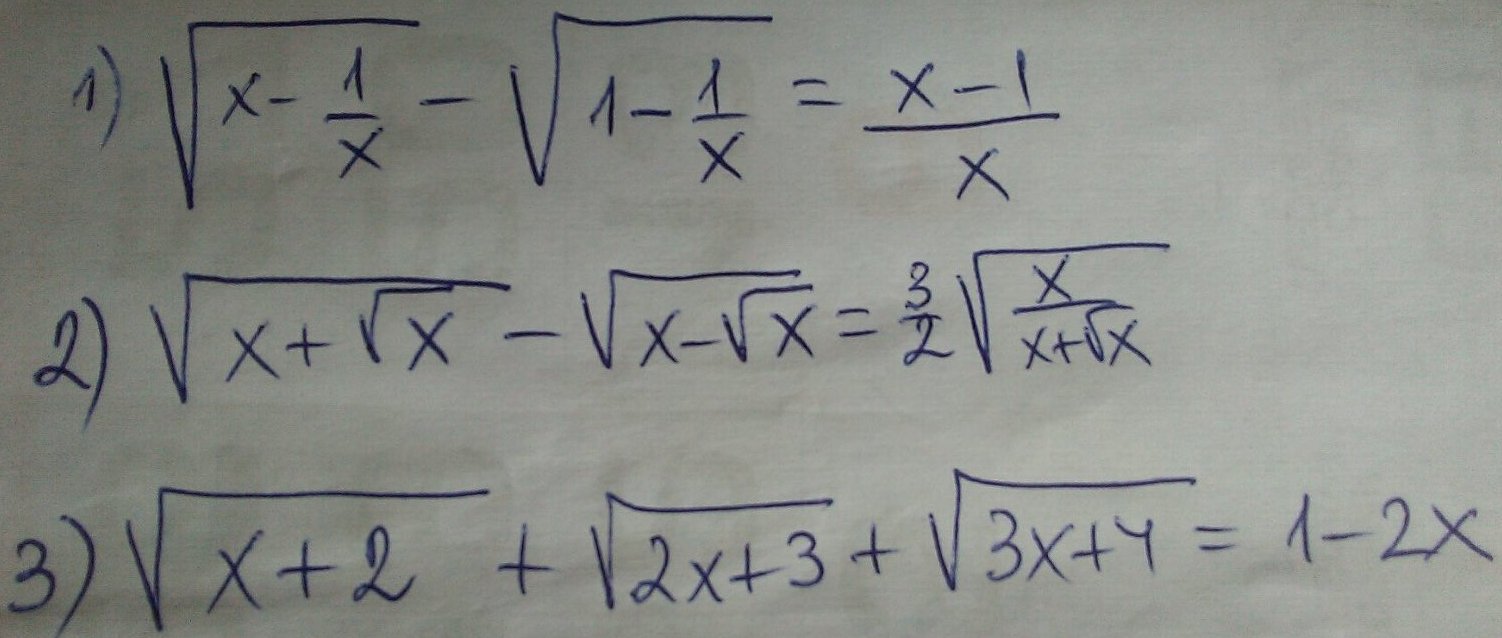 1) √(x - 1/x) - √(1 - 1/x) = (x - 1)/x
2) √(x + √x) - √(x - √x) = 3/2 √(x/(x + √x))
3) √(x + 2) + √(2x + 3) + √(3x + 4) = 1 - 2x